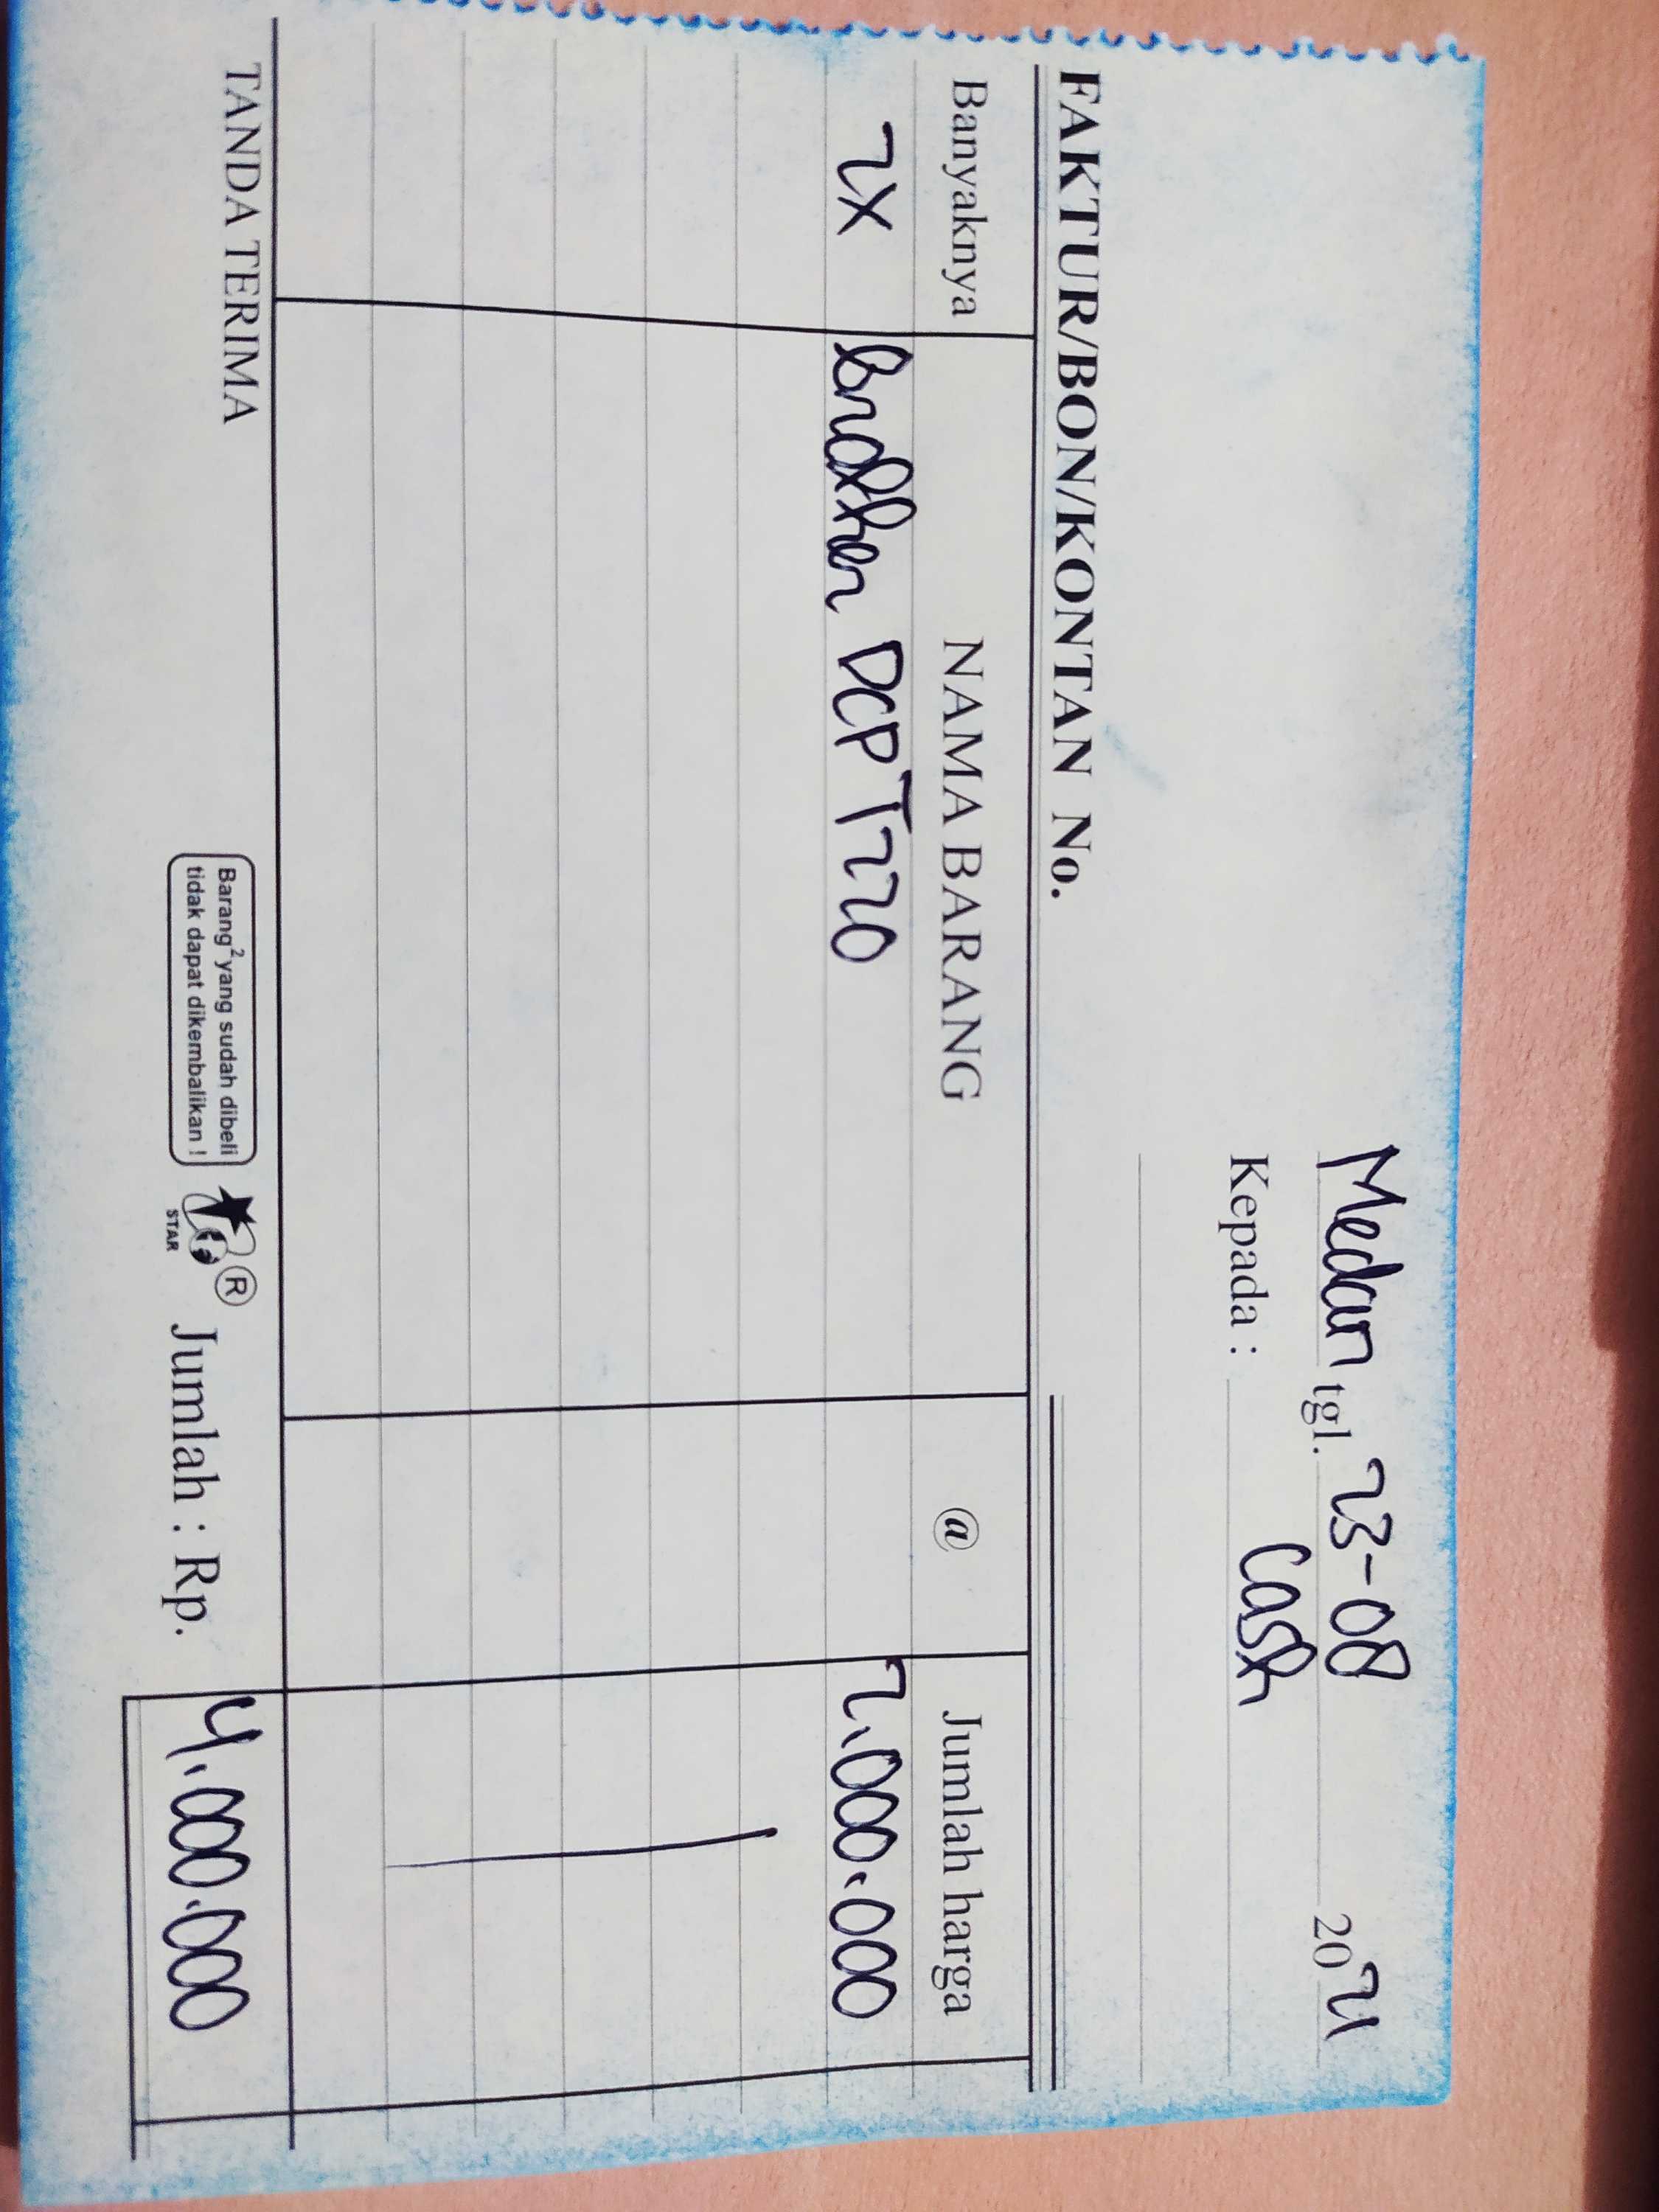 Medan tgl. 23-08 2024
Kepada : Cash
FAKTUR/BON/KONTAN No.
Banyaknya NAMA BARANG @ Jumlah harga
2X Brother DCP T220 2.000.000
TANDA TERIMA
Barang² yang sudah dibeli
tidak dapat dikembalikan !
STAR ®
Jumlah : Rp. 4.000.000